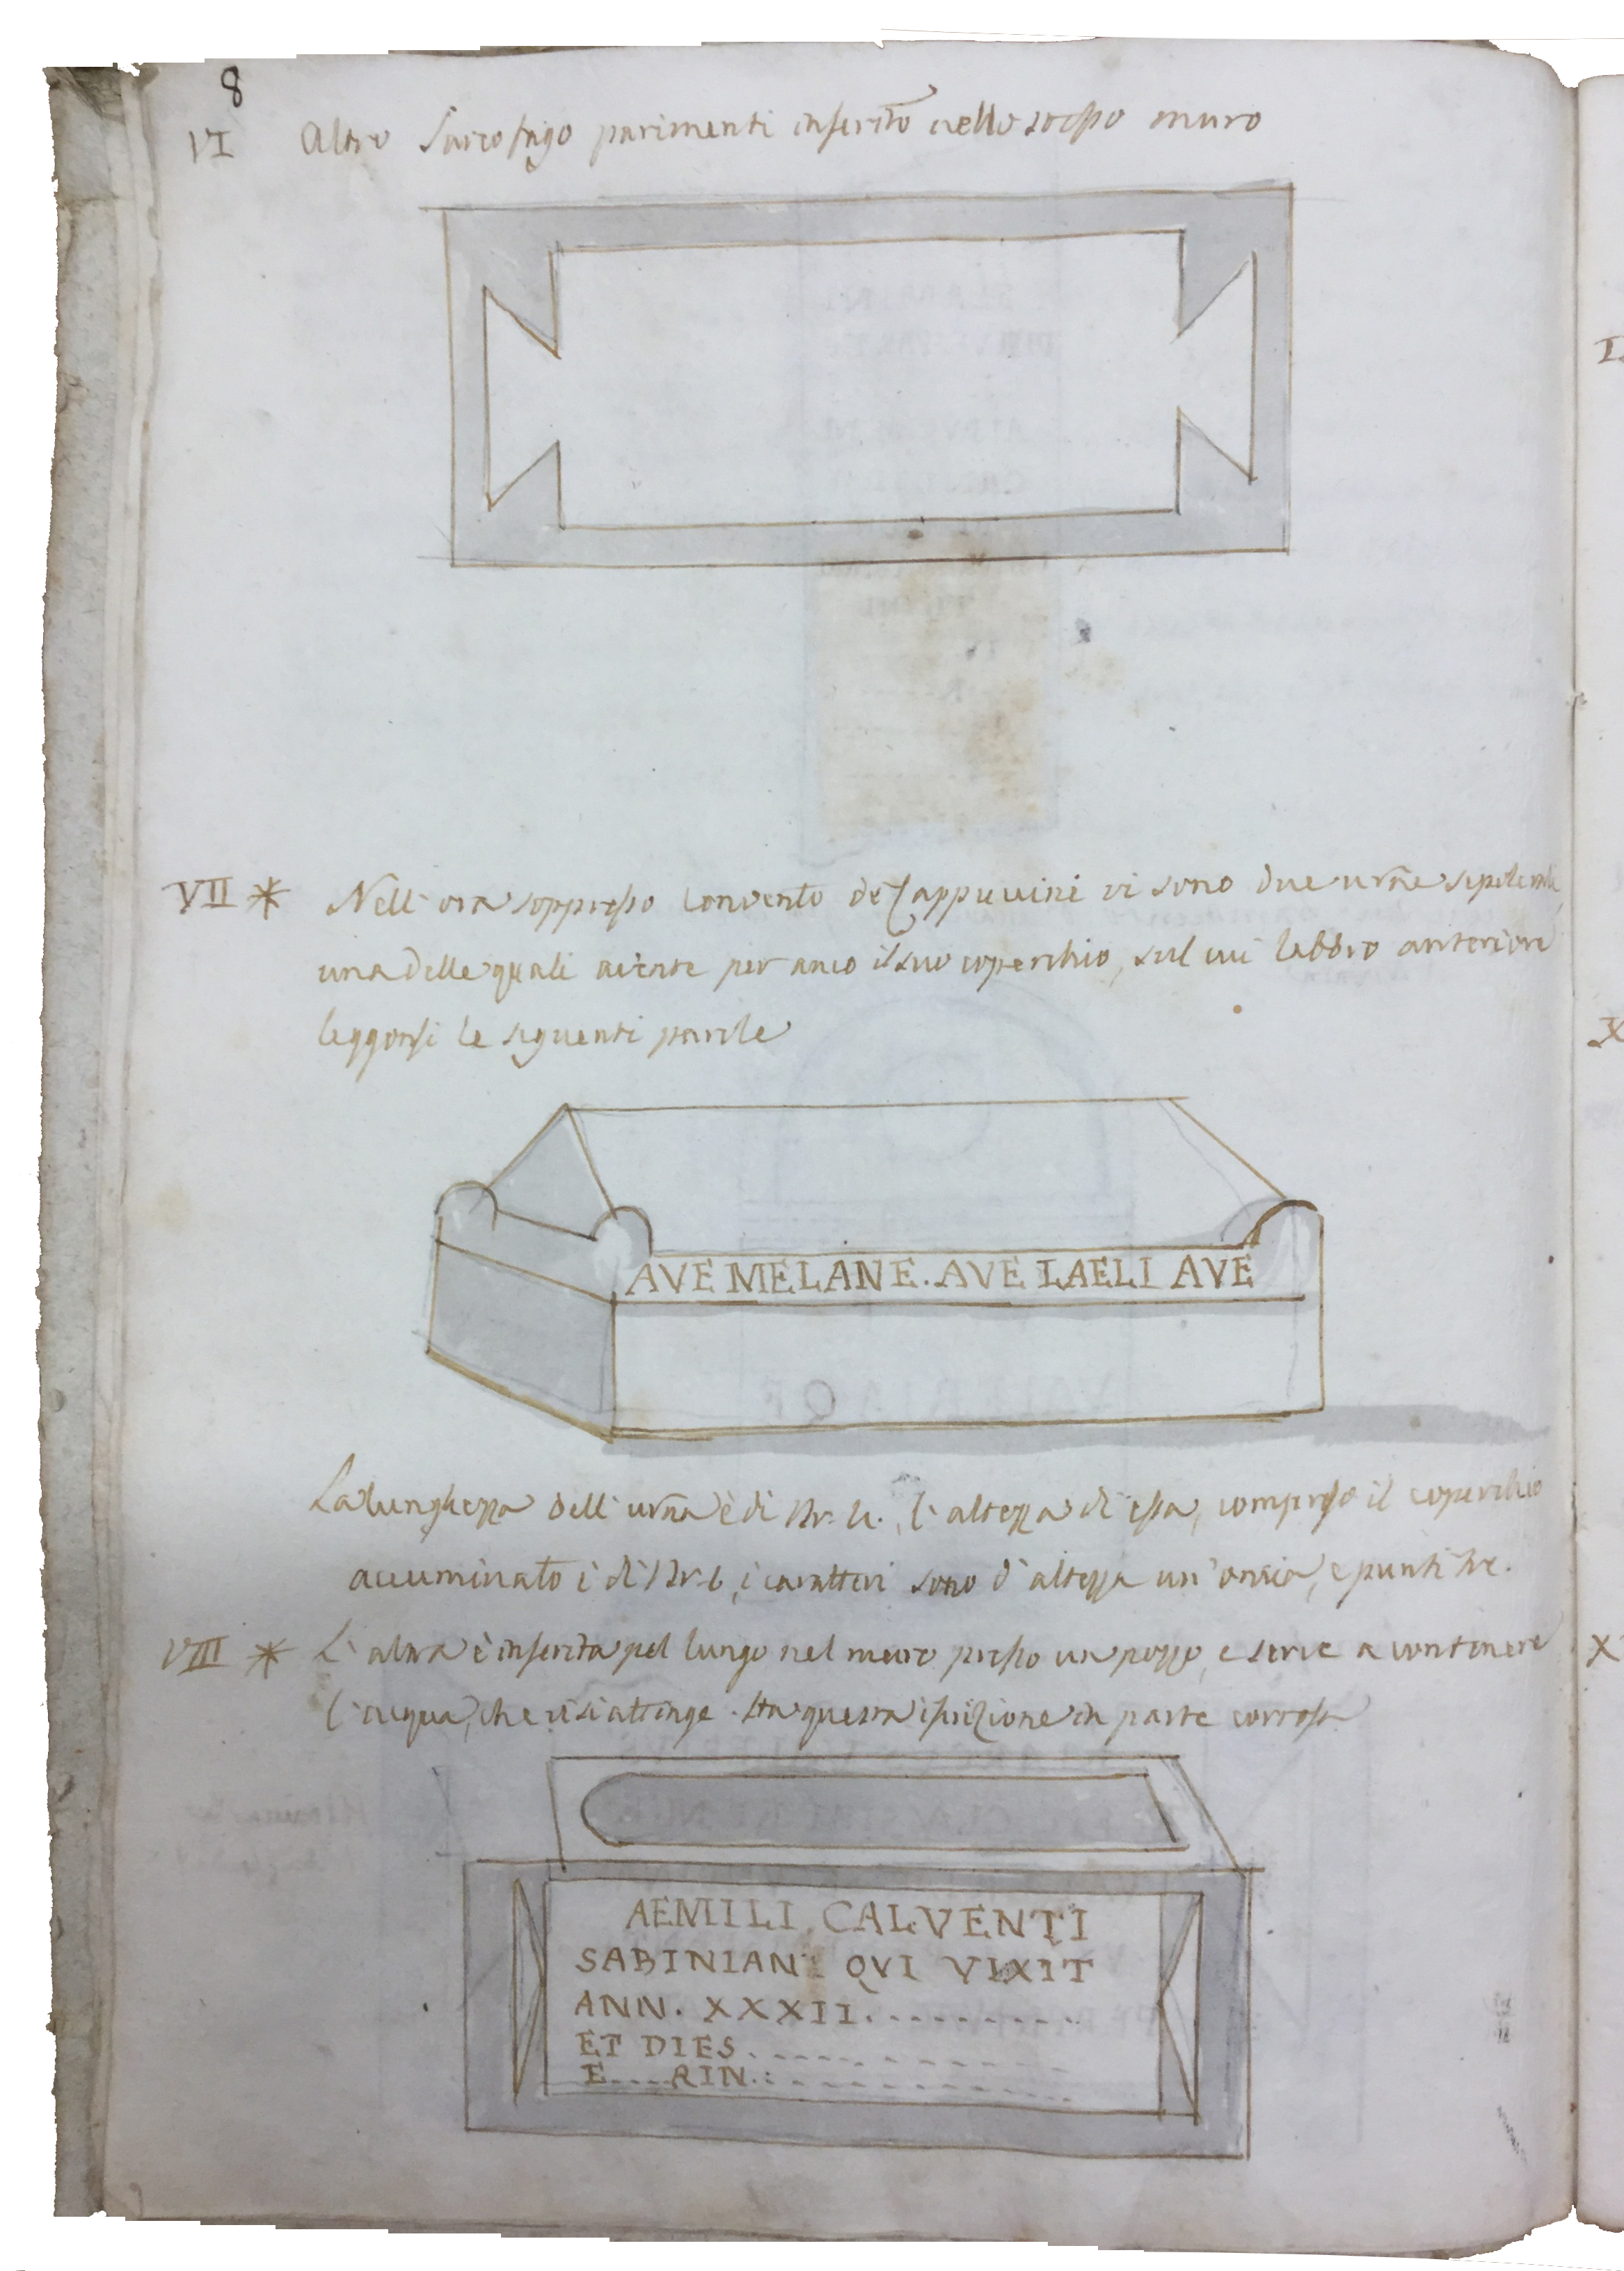 8
VI Altro Sarcofago parimenti inserito nello stesso muro
VII * Nell' ora soppresso Convento de Cappuccini vi sono due urne sepolcrali,
una delle quali avente per anco il suo coperchio, sul cui labbro anteriore
leggonsi le seguenti parole
AVE MELANE. AVE LAELI AVE
La lunghezza dell' urna è di Br. 4., l' altezza di essa, compreso il coperchio
accuminato è di Br. 6, i caratteri sono d' altezza un' oncia, e punti tre.
VIII * L' altra è inserita pel lungo nel muro presso un pozzo, e serve a contenere
l' acqua, che vi si attinge. Ha questa iscrizione in parte corrosa
AEMILI. CALVENTI
SABINIANI QVI VIXIT
ANN. XXXII. - - - - - - - - -
ET DIES. - - - - - - - - -
E....RIN.: - - - - - - - - -
X
X